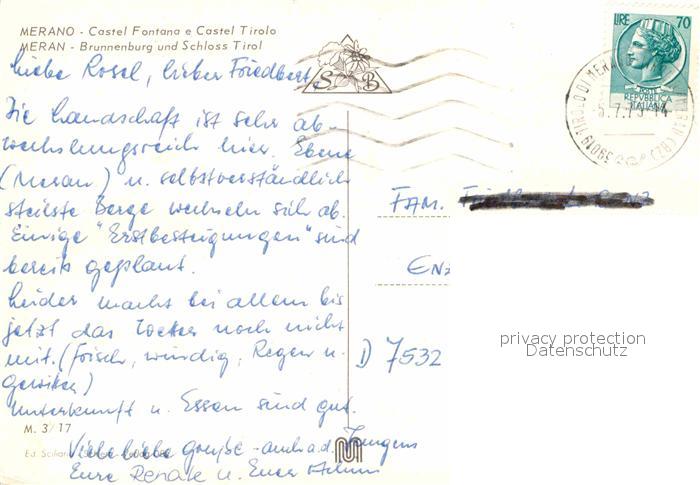 MERANO - Castel Fontana e Castel Tirolo
MERAN - Brunnenburg und Schloss Tirol
Liebe Rosel, lieber Friedbert,
Die Landschaft ist sehr ab-
wechslungsreich hier. Ebene
(Meran) u. selbstverständlich
steilste Berge wechseln sich ab.
Einige "Erstbesteigungen" sind
bereits geplant.
Leider macht bei allem bis
jetzt das Wetter noch nicht
mit. (Frisch, windig, Regen u.
Gewitter)
Unterkunft u. Essen sind gut.
Viele liebe Grüße - auch a.d. Jungens
Eure Renate u. Euer
M. 3/17
S B
LIRE 70
POSTE
REPUBBLICA
ITALIANA
39019 TIROLO DI MERANO
(BZ)
FAM.
ENZ
D 7532
privacy protection
Datenschutz